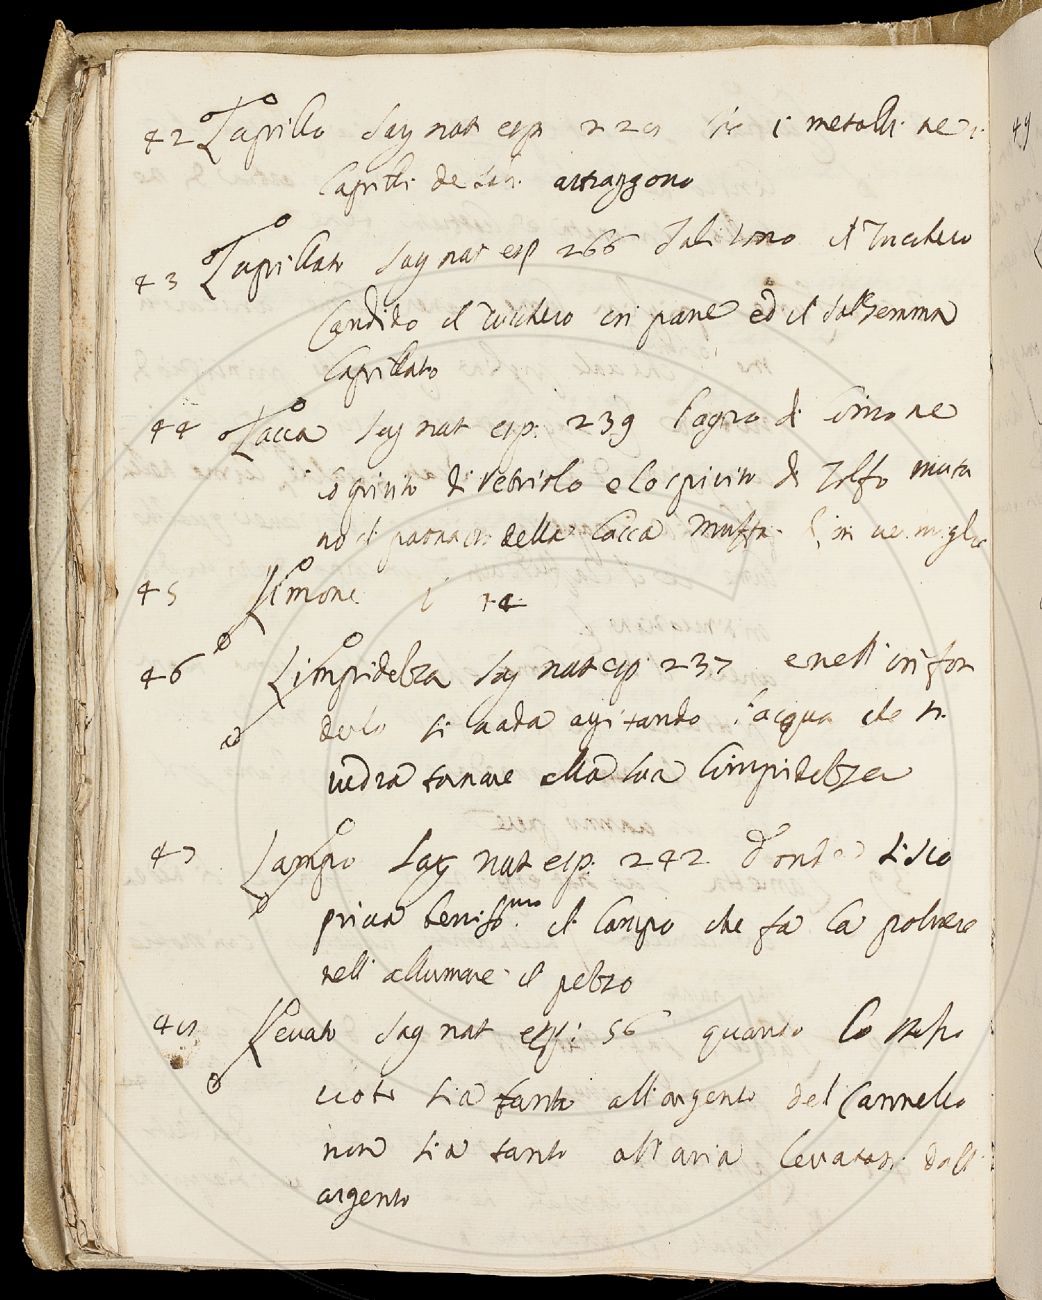 42 Lapillo Sag nat esp 229 Se i metalli ne i
Lapilli de essi attraggono
43 Lapillato Sag nat esp 266 Tali sono il Zucchero
Candido il Zucchero in pane ed il Salgemma
Lapillato
44 Lacca Sag nat esp: 239 l'agro di Limone
lo spirito di Vetriolo e lo spirito di Zolfo muta
no il paonazzo della Lacca Muffa in vermiglio
45 Limone 44
46 Limpidezza Sag nat esp 237 e nell infon
derlo si vada agitando l'acqua che si
vedrà tornare alla sua limpidezza
47 Lampo Sag nat esp: 242 d'onde si sco
priva beniss.mo il lampo che fa la polvere
nell allumare il pezzo
48 Levato Sag nat esp: 56 quanto lo
sia tanto all'argento del Cannello
non sia tanto all'aria levatasi dall
argento
49